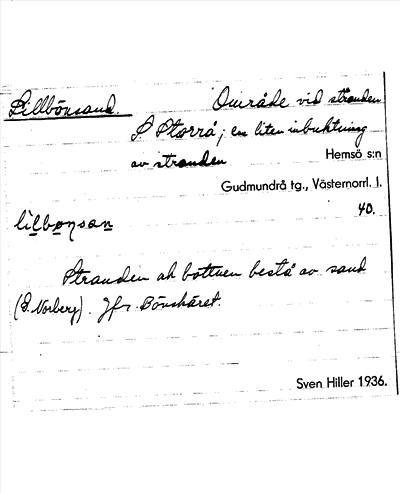 Lillbönsand. Område vid stranden
S. Storrå; en liten inbuktning
av stranden Hemsö s:n
Gudmundrå tg., Västernorrl. l.
lilbonsan 40.
Stranden ak bottnen bestå av sand
(E. Norberg). Jfr. Bönskäret.
Sven Hiller 1936.